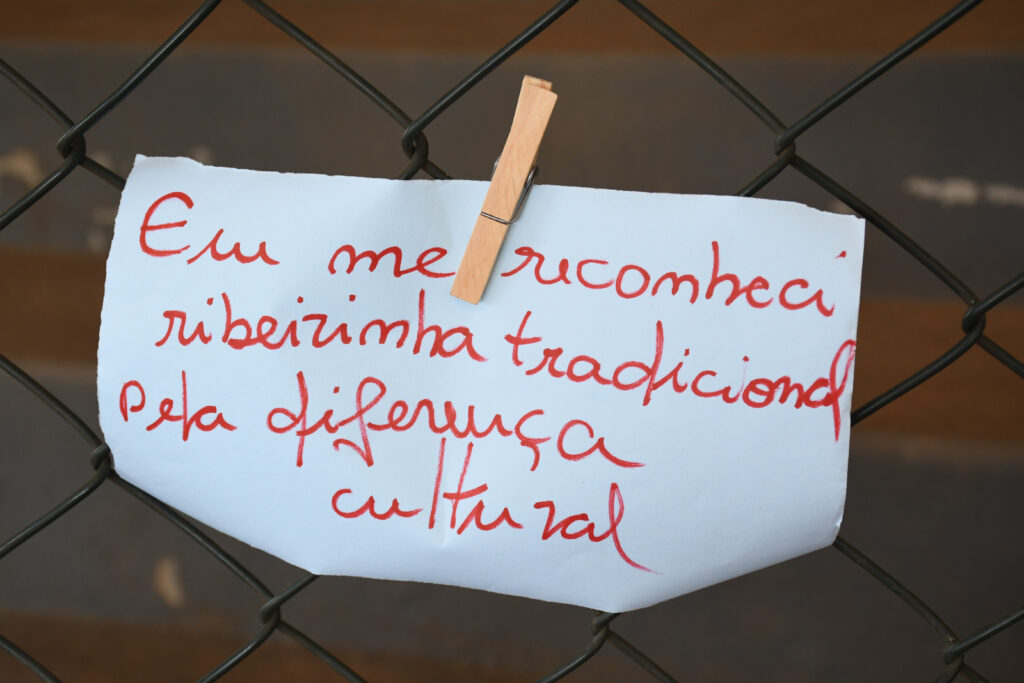 Eu me reconheci
ribeirinha tradicional
pela diferença
cultural